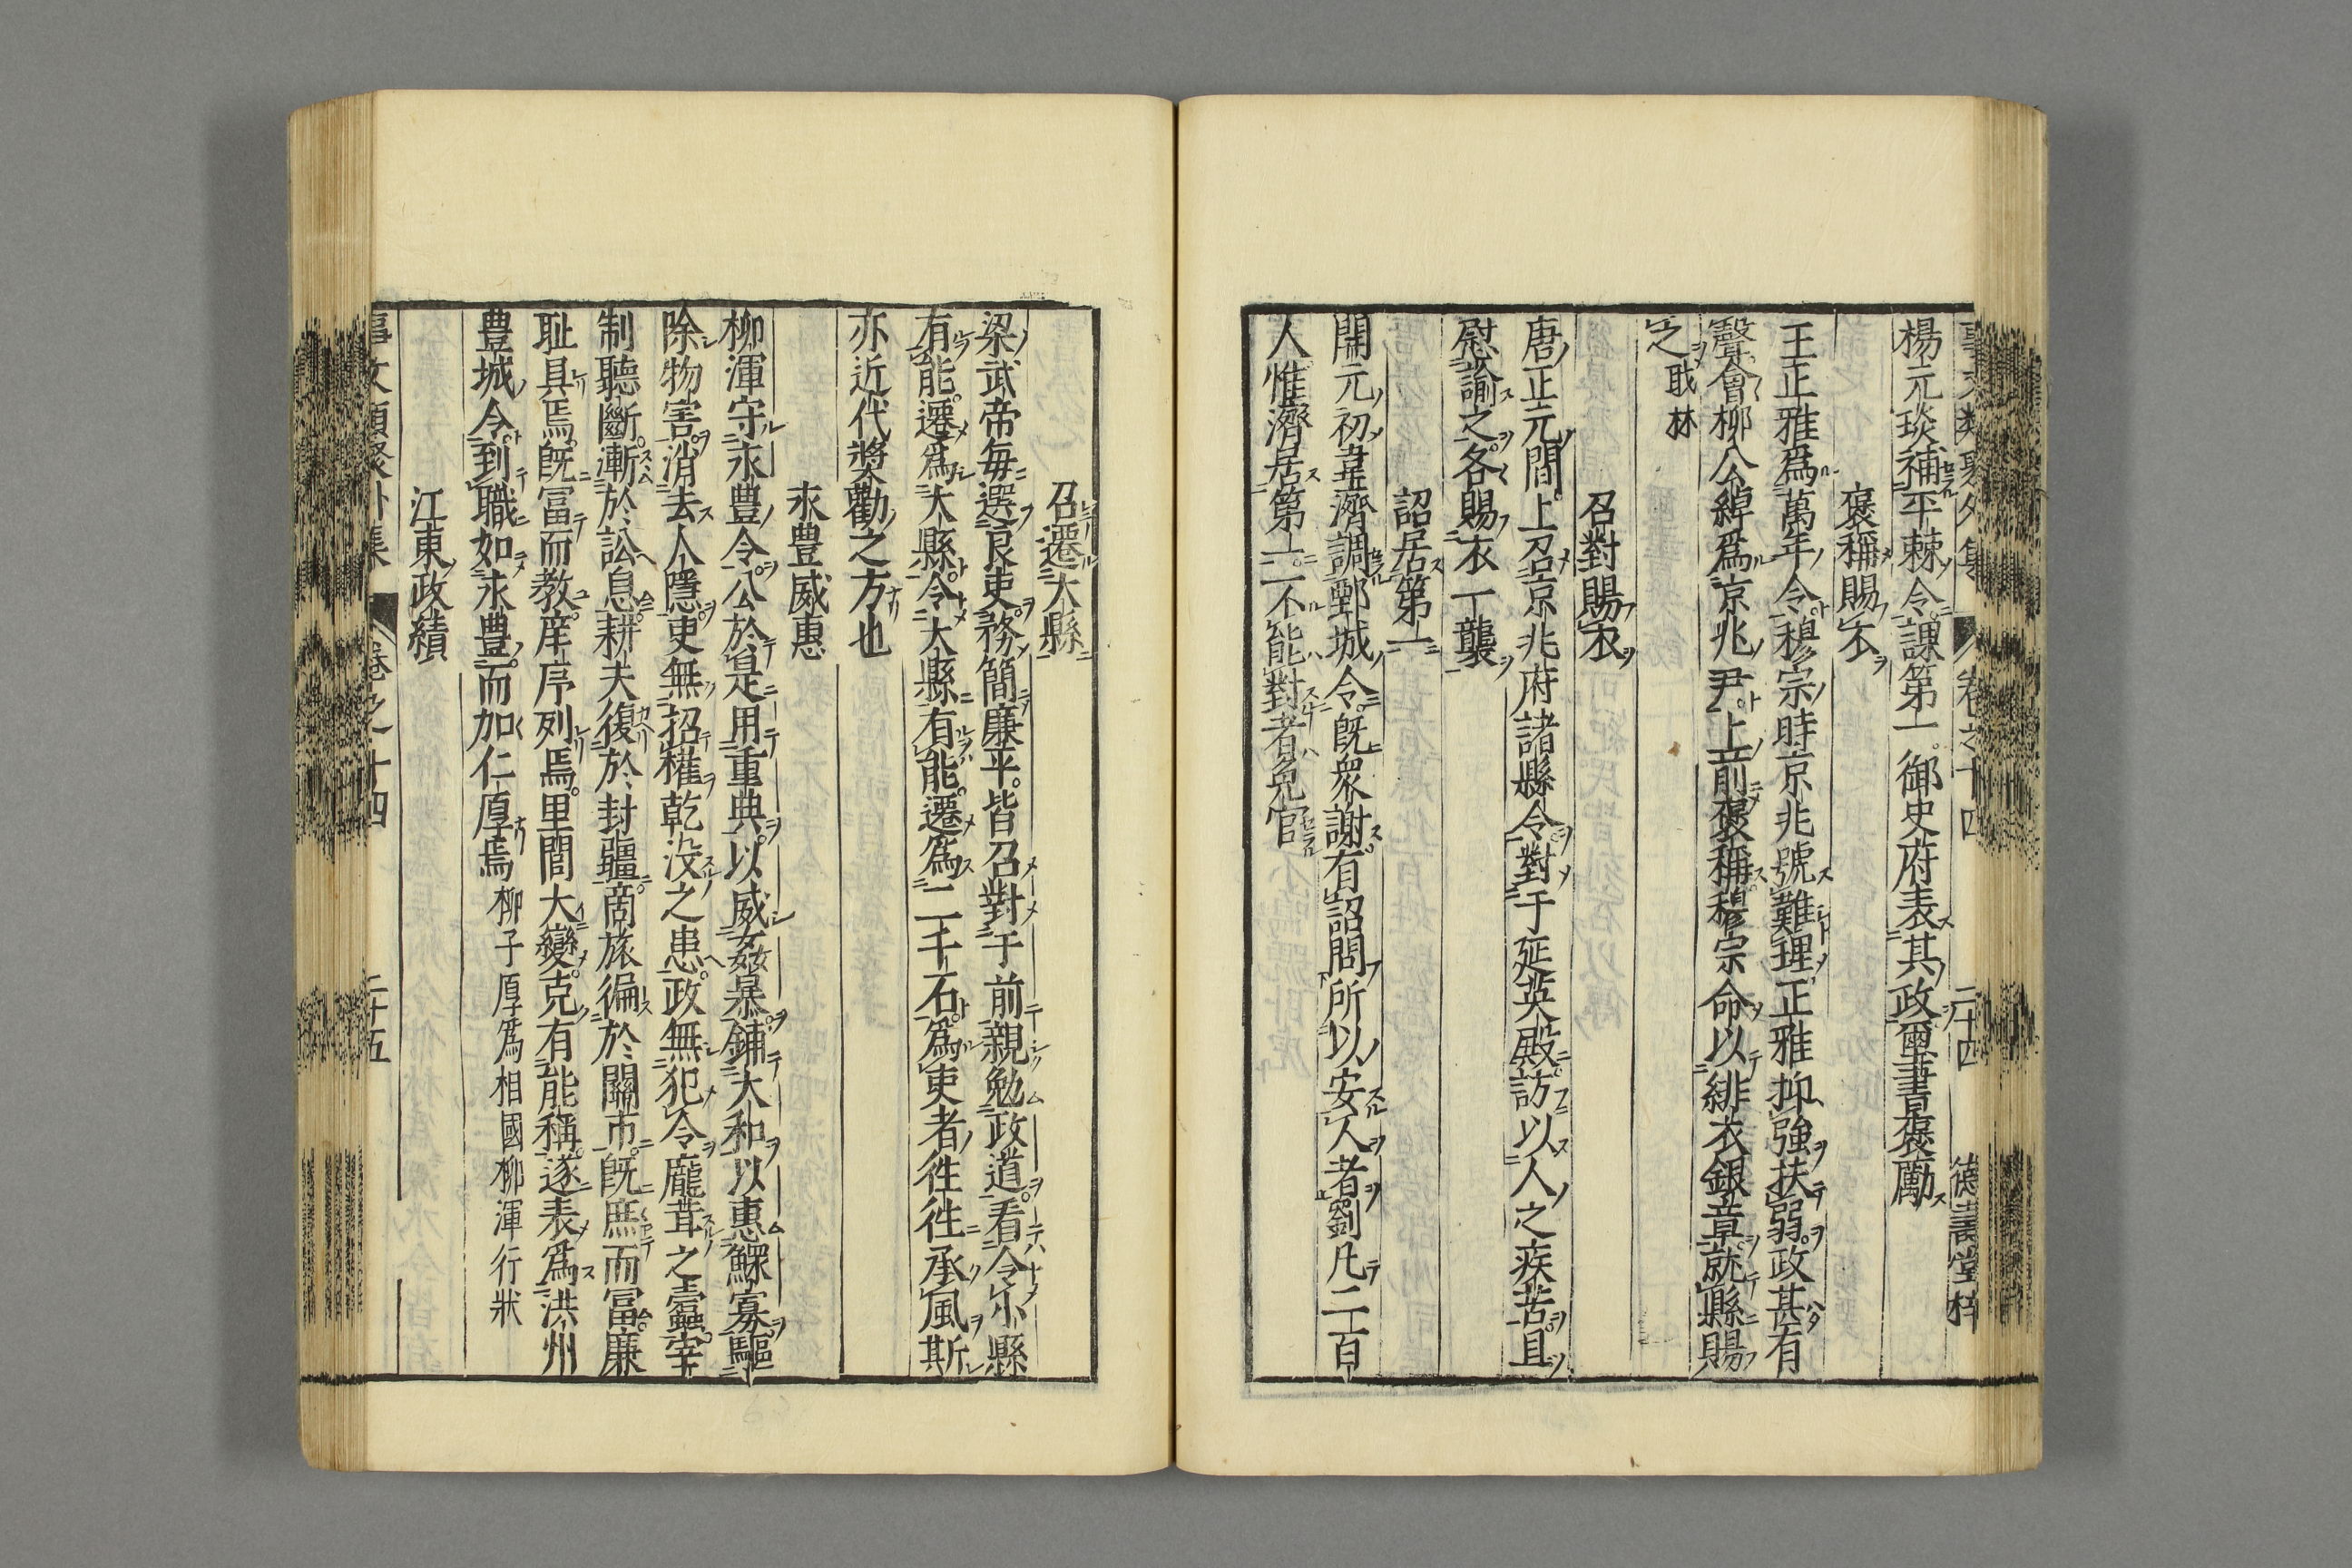 事文類聚外集 卷之十四 二十四 德壽堂梓
楊元琰補平棘令課第一御史府表其政璽書褒勵
褒稱賜衣
王正雅爲萬年令穆宗時京兆號難理正雅抑強扶弱政甚有
聲會柳公綽爲京兆尹上前褒稱穆宗命以緋衣銀章就縣賜
之 戢林
召對賜衣
唐正元間上召京兆府諸縣令對于延英殿訪以人之疾苦且
慰諭之各賜衣一襲
詔居第一
開元初韋濟調鄄城令既衆謝有詔問所以安人者劉凡二百
人惟濟居第一不能對者免官
召遷大縣
梁武帝每選良吏務簡廉平皆召對于前親勉政道看令小縣
有能遷爲大縣令大縣有能遷爲二千石爲吏者往往承風斯
亦近代奬勸之方也
永豊威惠
柳渾守永豊令公於是用重典以威姦暴鋪大和以惠鰥寡驅
除物害消去人隱吏無招權乾没之患政無犯令龐茸之蠹宰
制聽斷漸於訟息耕夫復於封疆商旅徧於關市既庶而富廉
耻具焉既富而教庠序列焉里閭大變克有能稱遂表爲洪州
豊城令到職如永豊而加仁厚焉 柳子厚爲相國柳渾行狀
江東政績
事文類聚外集 卷之十四 二十五